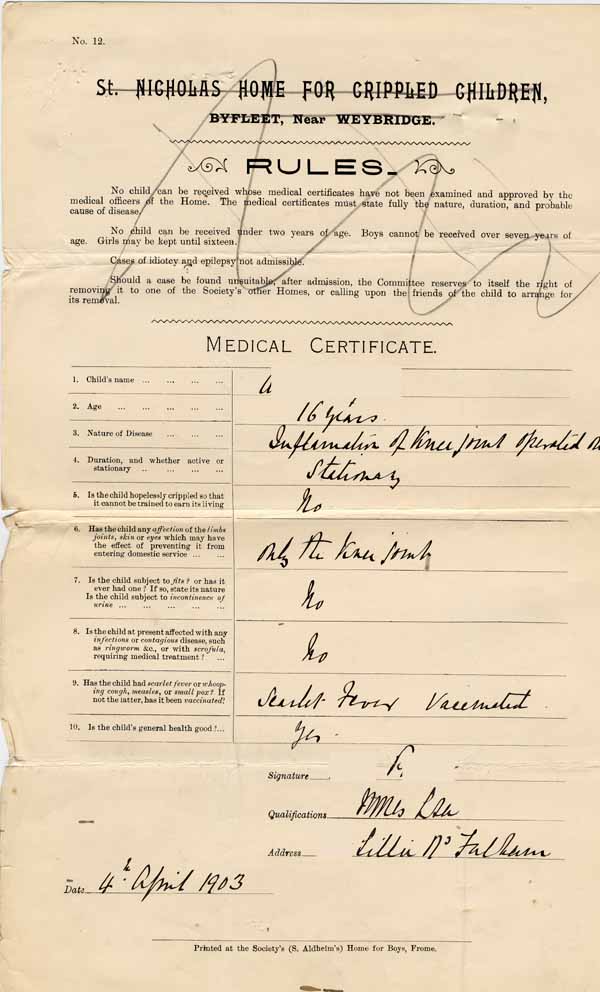 No. 12.
St. NICHOLAS HOME FOR CRIPPLED CHILDREN,
BYFLEET, Near WEYBRIDGE.
RULES.
No child can be received whose medical certificates have not been examined and approved by the
medical officers of the Home. The medical certificates must state fully the nature, duration, and probable
cause of disease.
No child can be received under two years of age. Boys cannot be received over seven years of
age. Girls may be kept until sixteen.
Cases of idiotcy and epilepsy not admissible.
Should a case be found unsuitable, after admission, the Committee reserves to itself the right of
removing it to one of the Society's other Homes, or calling upon the friends of the child to arrange for
its removal.
MEDICAL CERTIFICATE.
1. Child's name ... ... ... ... A
2. Age ... ... ... ... ... 16 years.
3. Nature of Disease ... ... ... Inflamation of Knee joint operated on
4. Duration, and whether active or
stationary .. ... ... ... Stationary
5. Is the child hopelessly crippled so that
it cannot be trained to earn its living No
6. Has the child any affection of the limbs
joints, skin or eyes which may have
the effect of preventing it from
entering domestic service ... ... only the Knee joint
7. Is the child subject to fits? or has it
ever had one? If so, state its nature
Is the child subject to incontinence of
urine ... ... ... ... ... No
8. Is the child at present affected with any
infections or contagious disease, such
as ringworm &c., or with scrofula,
requiring medical treatment? ... No
9. Has the child had scarlet fever or whoop-
ing cough, measles, or small pox? If
not the latter, has it been vaccinated? Scarlet Fever Vaccinated.
10. Is the child's general health good?... Yes.
Signature
Qualifications LSA
Address Lillie Rd Fulham
Date 4th April 1903
Printed at the Society's (S. Aldheim's) Home for Boys, Frome.